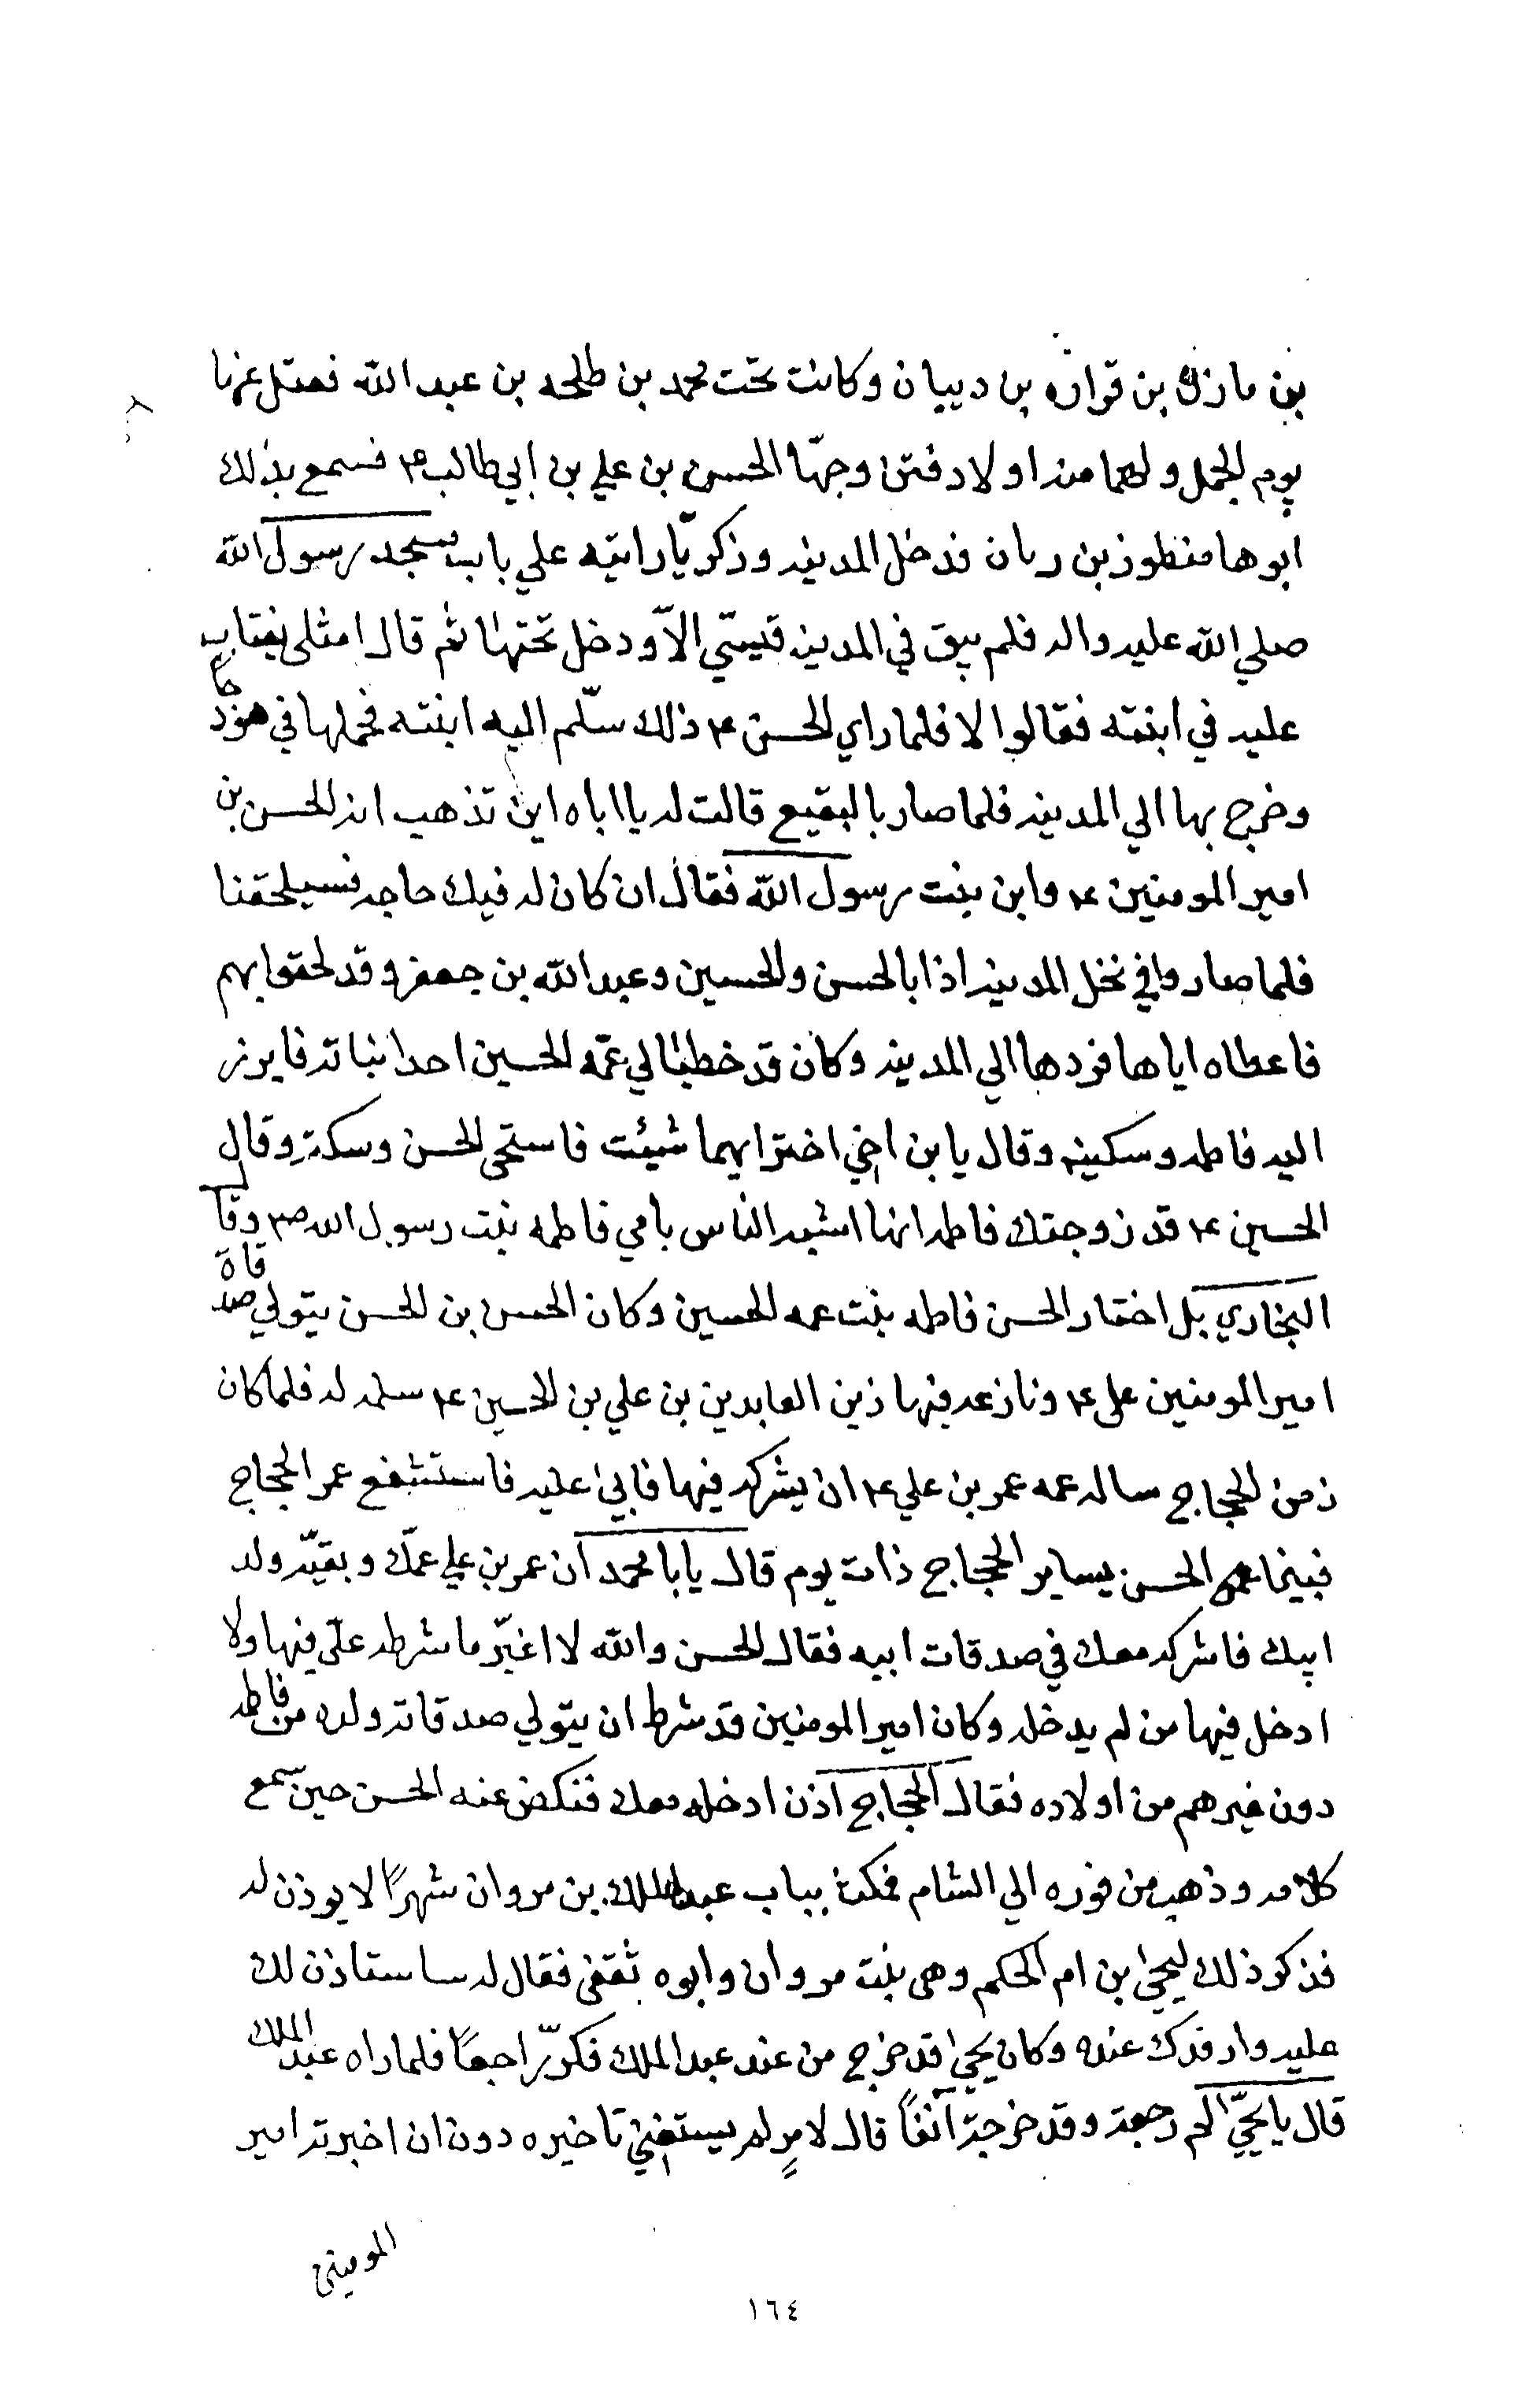 بن مازن بن قراره بن ديبان وكانت تحت محمد بن طلحه بن عبد الله فقتل عنها
يوم الجمل ولهما منه اولاد فتزوجها الحسن بن علي بن ابي طالب ع م فسمع بذلك
ابوها منظور بن ريان فدخل المدينه وذكر رايته علي باب مسجد رسول الله
صلي الله عليه واله فلم يبق في المدينه قيسي الا ودخل تحتها ثم قال امثلي يفتاب
عليه في ابنته فقالوا لا فلما راي الحسن ع م ذلك سلم اليه ابنته فحملها في هودج
وخرج بها الي المدينه فلما صار بالبقيع قالت له يا اباه اين تذهب انه الحسن بن
امير المومنين ع م وابن بنت رسول الله فقال ان كان له فيك حاجه فسيلحقنا
فلما صاروا في نخل المدينه اذا بالحسن والحسين وعبد الله بن جعفر وقد لحقوا بهم
فاعطاه اياها فردها الي المدينه وكان قد خطب الي عمه الحسين احدا بناته فابرز
اليه فاطمه وسكينه وقال يا بن اخي اختر ايهما شيئت فاستحي الحسن وسكت وقال
الحسين ع م قد زوجتك فاطمه انها اشبه الناس بامي فاطمه بنت رسول الله ص م وقا
البخاري بل اختار الحسن فاطمه بنت عمه الحسين وكان الحسن بن الحسن يتولي صدقات
امير المومنين علي ع م ونازعه فيها زين العابدين بن علي بن الحسين ع م سلمه له فلما كان
زمن الحجاج ساله عمه عمر بن علي ع م ان يشركه فيها فابي عليه فاستشفع عمر الحجاج
فبينما الحسن يساير الحجاج ذات يوم قال يا با محمد ان عمر بن علي عمك وبقيه ولد
ابيك فاشركه معك في صدقات ابيه فقال الحسن والله لا اغير ما شرط علي فيها ولا
ادخل فيها من لم يدخله وكان امير المومنين قد شرط ان يتولي صدقاته ولده من فاطمه
دون غيرهم من اولاده فقال الحجاج اذن ادخله معك فنكص عنه الحسن حين سمع
كلامه وذهب من فوره الي الشام فمكث بباب عبد الملك بن مروان شهرًا لا يوذن له
فذكر ذلك ليحيٰ بن ام الحكم وهي بنت مروان وابوه ثقفي فقال له ساستاذن لك
عليه وارفدك عنده وكان يحيٰ قد خرج من عند عبد الملك فكرّ راجعًا فلما راه عبد الملك
قال يا يحيٰ لم رجعت وقد خرجت آنفًا قال لامرٍ لم يستغني تاخيره دون ان اخبرته امير
المومنين
١٦٤